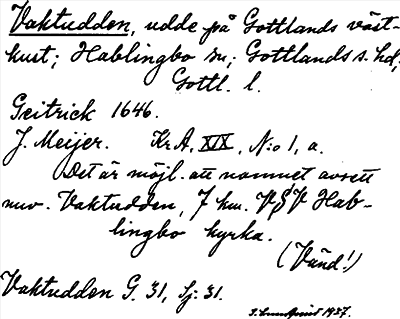 Vaktudden, udde på Gottlands väst-
kust; Hablingbo sn; Gottlands s. hd,
Gottl. l.
Geitrick 1646.
J. Meijer. Kr A, XIX, N:o 1, a.
Det är möjl. att namnet avsett
nuv. Vaktudden, 7 km. V§V Hab-
lingbo kyrka.
(Vänd!)
Vaktudden G. 31, Sj: 31.
I. Lundquist 1927.